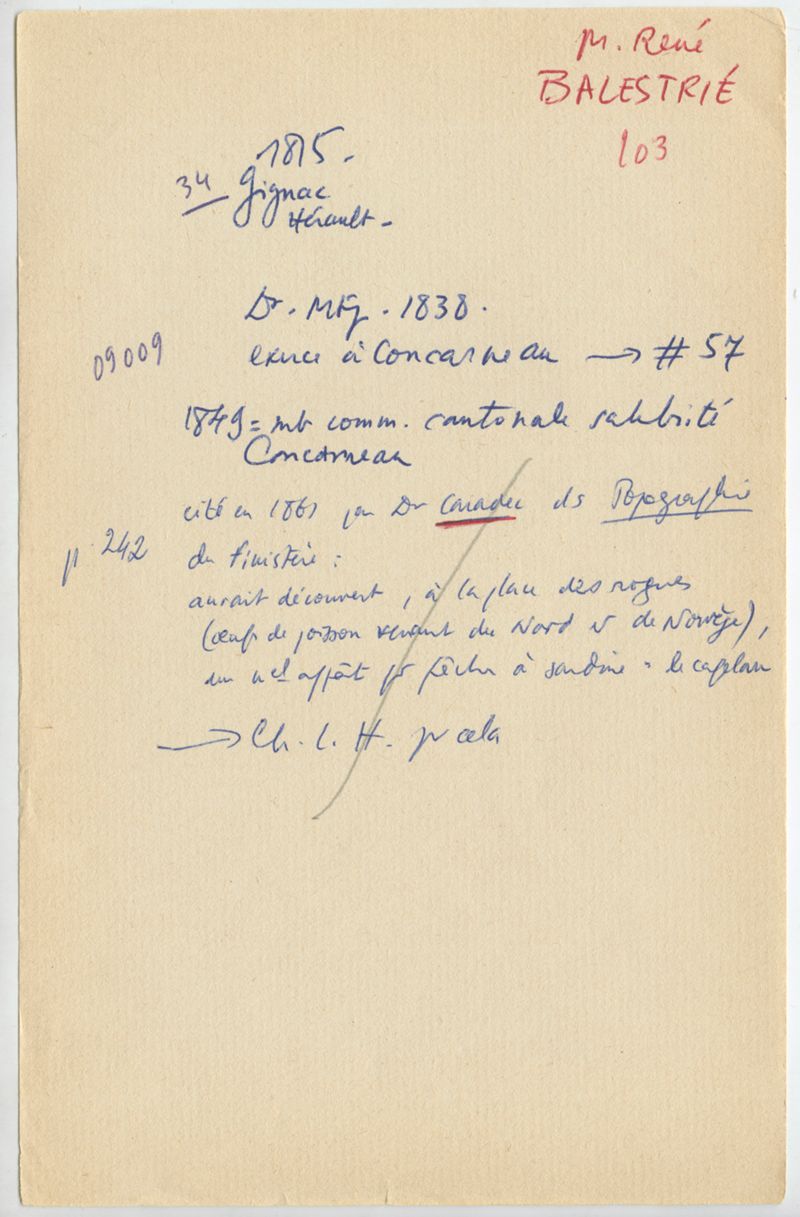 M. René
BALESTRIÉ
103
1815.
34 Gignac
Hérault.
Dr. M 1838.
09009
exerce à Concarneau → # 57
1849 = mb comm. cantonale salubrité
Concarneau
cité en 1861 par Dr Caradec ds Topographie
p. 242
du Finistère :
aurait découvert, à la place des rogues
(œufs de poisson venant du Nord de Norvège),
un nel appât pr pêcher à sardine = le capelan
→ Ch. L. H. pr cela